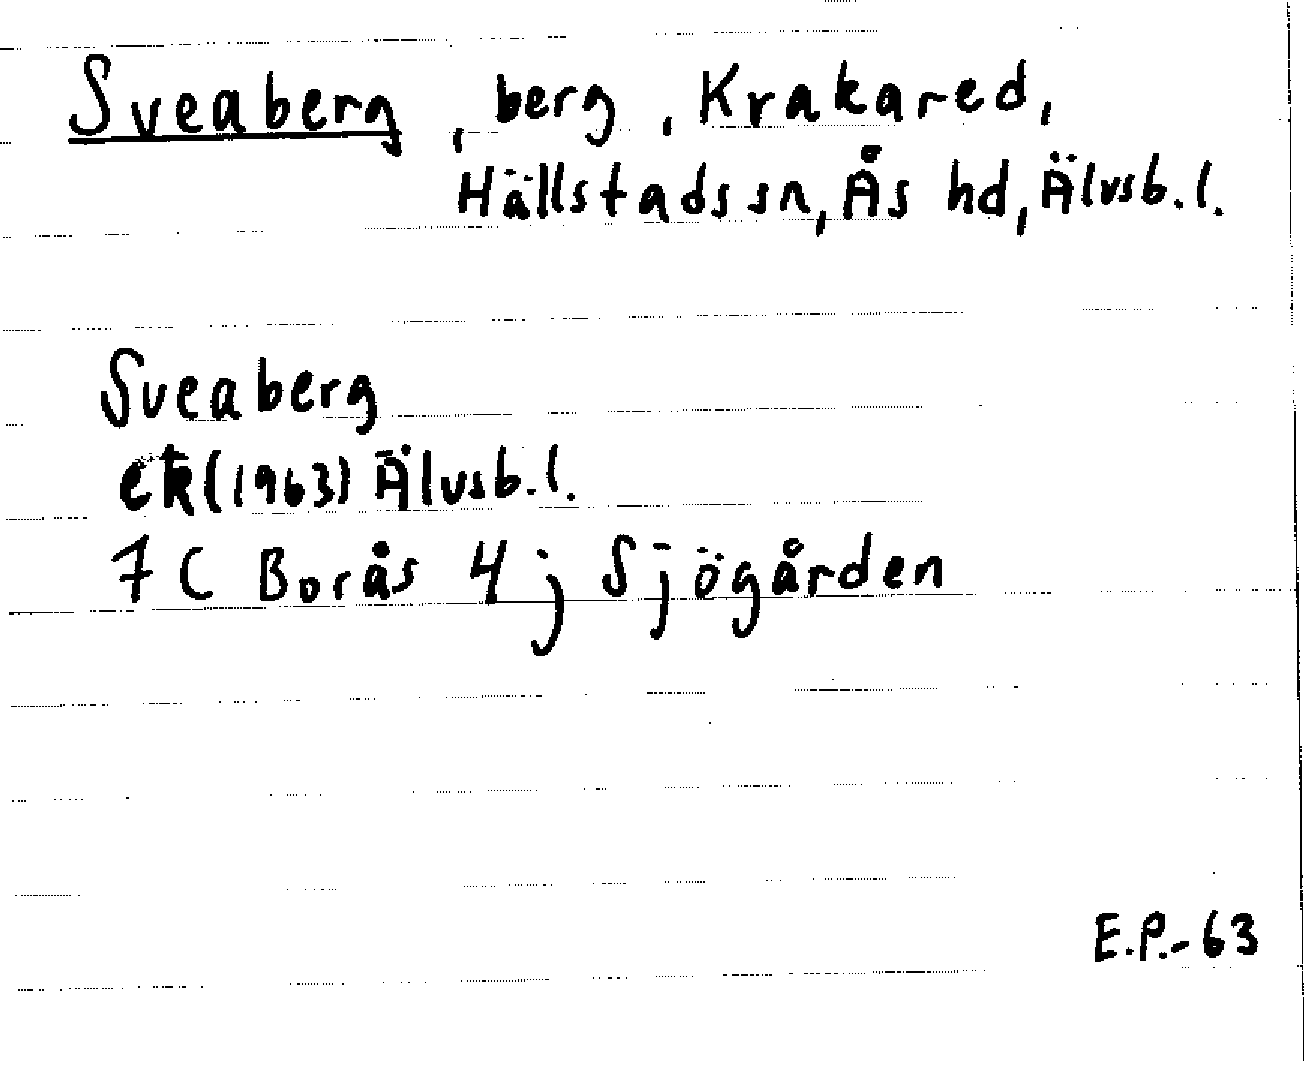 Sveaberg, berg, Krakared,
Hällstads sn, Ås hd, Älvsb. l.
Sveaberg
ek (1963) Älvsb. l.
7 C Borås 4 j Sjögården
E.P.-63